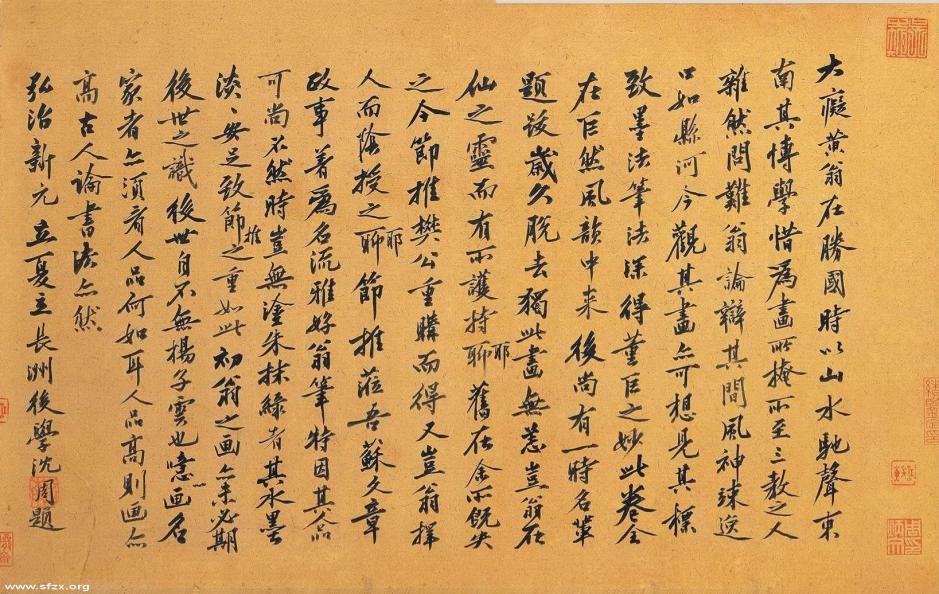 大癡黃翁在勝國時以山水馳聲東
南其博學惜為畫所掩所至三教之人
雜然問難翁論辯其間風神竦逸
口如縣河今觀其畫亦可想見其標
致墨法筆法深得董巨之妙此卷全
在巨然風韻中来後尚有一時名輩
題跋歲久脫去獨此畫無恙豈翁在
仙之靈而有所護持聊耶舊在余所既失
之今節推樊公重購而得又豈翁擇
人而陰授之聊耶節推蒞吾蘇文章
政事著為名流雅好翁筆特因其品
可尚不然時豈無塗朱抹綠者其水墨
淡〻安足致節推之重如此初翁之画亦未必期
後世之識後世自不無楊子雲也噫画名
家者亦須看人品何如耳人品高則画亦
高古人論書法亦然
弘治新元立夏立長洲後學沈周題
www.sfzx.org